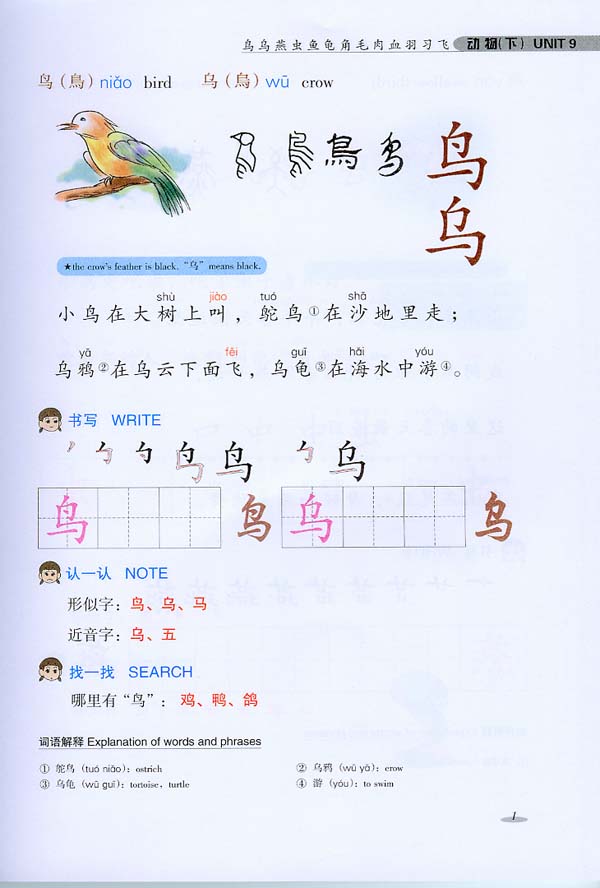 鸟乌燕虫鱼龟角毛肉血羽习飞 动物(下) UNIT 9
鸟（鳥）niǎo bird 乌（烏）wū crow
鸟
乌
★the crow's feather is black. "乌" means black.
shù jiào tuó shā
小鸟在大树上叫，鸵鸟①在沙地里走；
yā fēi guī hǎi yóu
乌鸦②在乌云下面飞，乌龟③在海水中游④。
书写 WRITE
鸟 乌
鸟 鸟 乌 乌
认一认 NOTE
形似字：鸟、乌、马
近音字：乌、五
找一找 SEARCH
哪里有“鸟”：鸡、鸭、鸽
词语解释 Explanation of words and phrases
① 鸵鸟（tuó niǎo）：ostrich ② 乌鸦（wū yā）：crow
③ 乌龟（wū guī）：tortoise, turtle ④ 游（yóu）：to swim
1